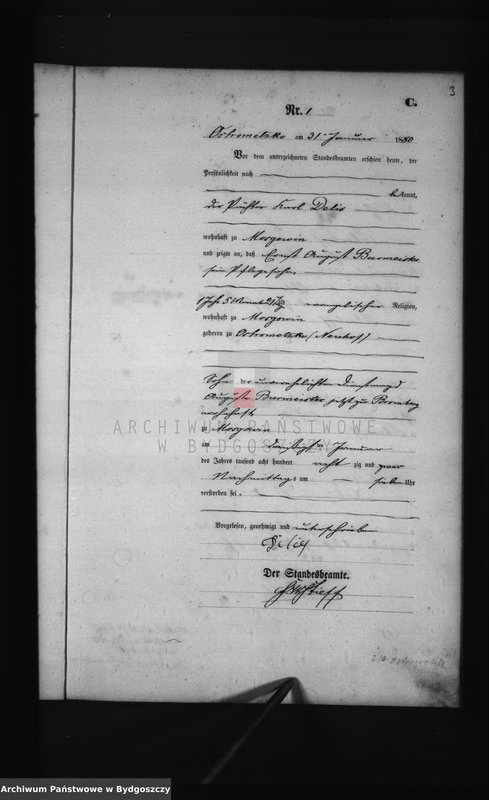 3
C.
Nr. 1
Ostrometzko am 31 Januar 1880
Vor dem unterzeichneten Standesbeamten erschien heute, der
Persönlichkeit nach
bekannt,
der Pächter Karl
wohnhaft zu
und zeigte an, daß Ernst August Burmeister
sein Pflegesohn,
1 Jahr 5 Monat evangelischer Religion,
wohnhaft zu
geboren zu Ostrometzko (Neuhof)
Sohn der unverehelichten Dienstmagd
Auguste Burmeister jetzt zu Bromberg
wohnhaft
zu
am dreißigsten Januar
des Jahres tausend acht hundert acht zig und
Nachmittags um sieben Uhr
verstorben sei.
Vorgelesen, genehmigt und unterschrieben
Der Standesbeamte.
ARCHIWUM PAŃSTWOWE
W BYDGOSZCZY
Archiwum Państwowe w Bydgoszczy